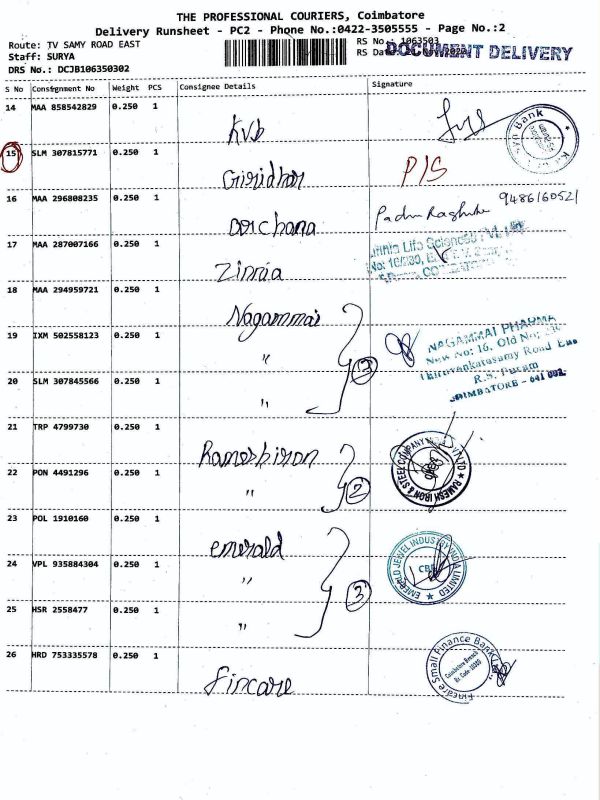 THE PROFESSIONAL COURIERS, Coimbatore
Delivery Runsheet - PC2 - Phone No.:0422-3505555 - Page No.:2
Route: TV SAMY ROAD EAST
RS No.: 1063503
Staff: SURYA
RS Da
DOCUMENT DELIVERY
DRS No.: DCJB106350302
S No Consignment No Weight PCS Consignee Details Signature
14 MAA 858542829 0.250 1 KVB
Bank
15 SLM 307815771 0.250 1 Giridhar P/S
16 MAA 296808235 0.250 1 Archana Padm 9486160521
17 MAA 287007166 0.250 1 Zinnia
Life Sciences Pvt.
18 MAA 294959721 0.250 1 Nagammai
19 IXM 502558123 0.250 1 "
NAGAMMAI PHARMA
New No: 16, Old No:
Thiruvenkatasamy Road East
R.S. Puram
COIMBATORE - 641 002.
20 SLM 307845566 0.250 1 "
21 TRP 4799730 0.250 1 Ramesh iron
22 PON 4491296 0.250 1 " 2
RAMESH IRON & STEEL COMPANY
23 POL 1910160 0.250 1 emerald
24 VPL 935884304 0.250 1 " 3
EMERALD JEWEL INDUSTRY INDIA LIMITED
CBE
25 HSR 2558477 0.250 1 "
26 HRD 753335578 0.250 1 fincare
Fincare Small Finance Bank Ltd
Coimbatore Branch